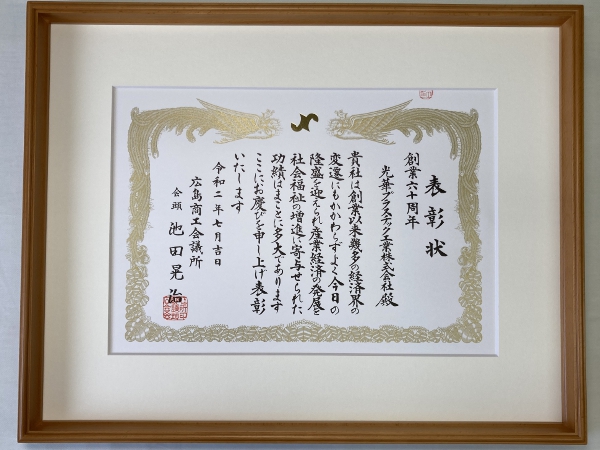 表彰状
創業六十周年
光華プラスチック工業株式会社殿
貴社は創業以来幾多の経済界の
変遷にもかかわらずよく今日の
隆盛を迎えられ産業経済の発展と
社会福祉の増進に寄与せられた
功績はまことに多大であります
ここにお慶びを申し上げ表彰
いたします
令和二年七月吉日
広島商工会議所
会頭 池田晃治